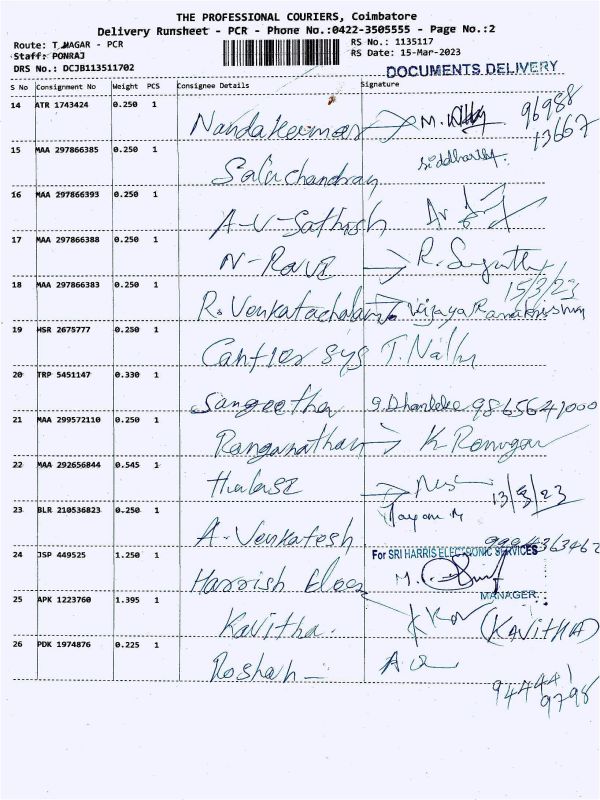 THE PROFESSIONAL COURIERS, Coimbatore
Delivery Runsheet - PCR - Phone No.:0422-3505555 - Page No.:2
Route: T_NAGAR - PCR
RS No.: 1135117
Staff: PONRAJ
RS Date: 15-Mar-2023
DRS No.: DCJB113511702
DOCUMENTS DELIVERY
S No Consignment No Weight PCS Consignee Details Signature
14 ATR 1743424 0.250 1
Nandakumar M. 96988
13667
15 MAA 297866385 0.250 1
Salachandran Siddharth.
16 MAA 297866393 0.250 1
A-V-Sathish
17 MAA 297866388 0.250 1
N-Ravi R.
18 MAA 297866383 0.250 1
15/3/23
R. Venkatachalam Vijaya Ramakrishnan
19 MSR 2675777 0.250 1
Cantier Sys T.
20 TRP 5451147 0.330 1
Sangeetha 9865641000
21 MAA 299572110 0.250 1
Ranganathan K
22 MAA 292656844 0.545 1
13/3/23
23 BLR 210536823 0.250 1
A. Venkatesh 9994363462
24 JSP 449525 1.250 1
For SRI HARRIS ELECTRONIC SERVICES
Harrish Elec M.
MANAGER
25 APK 1223760 1.395 1
Kavitha. (KAVITHA)
26 PDK 1974876 0.225 1
Roshah
94441
9798